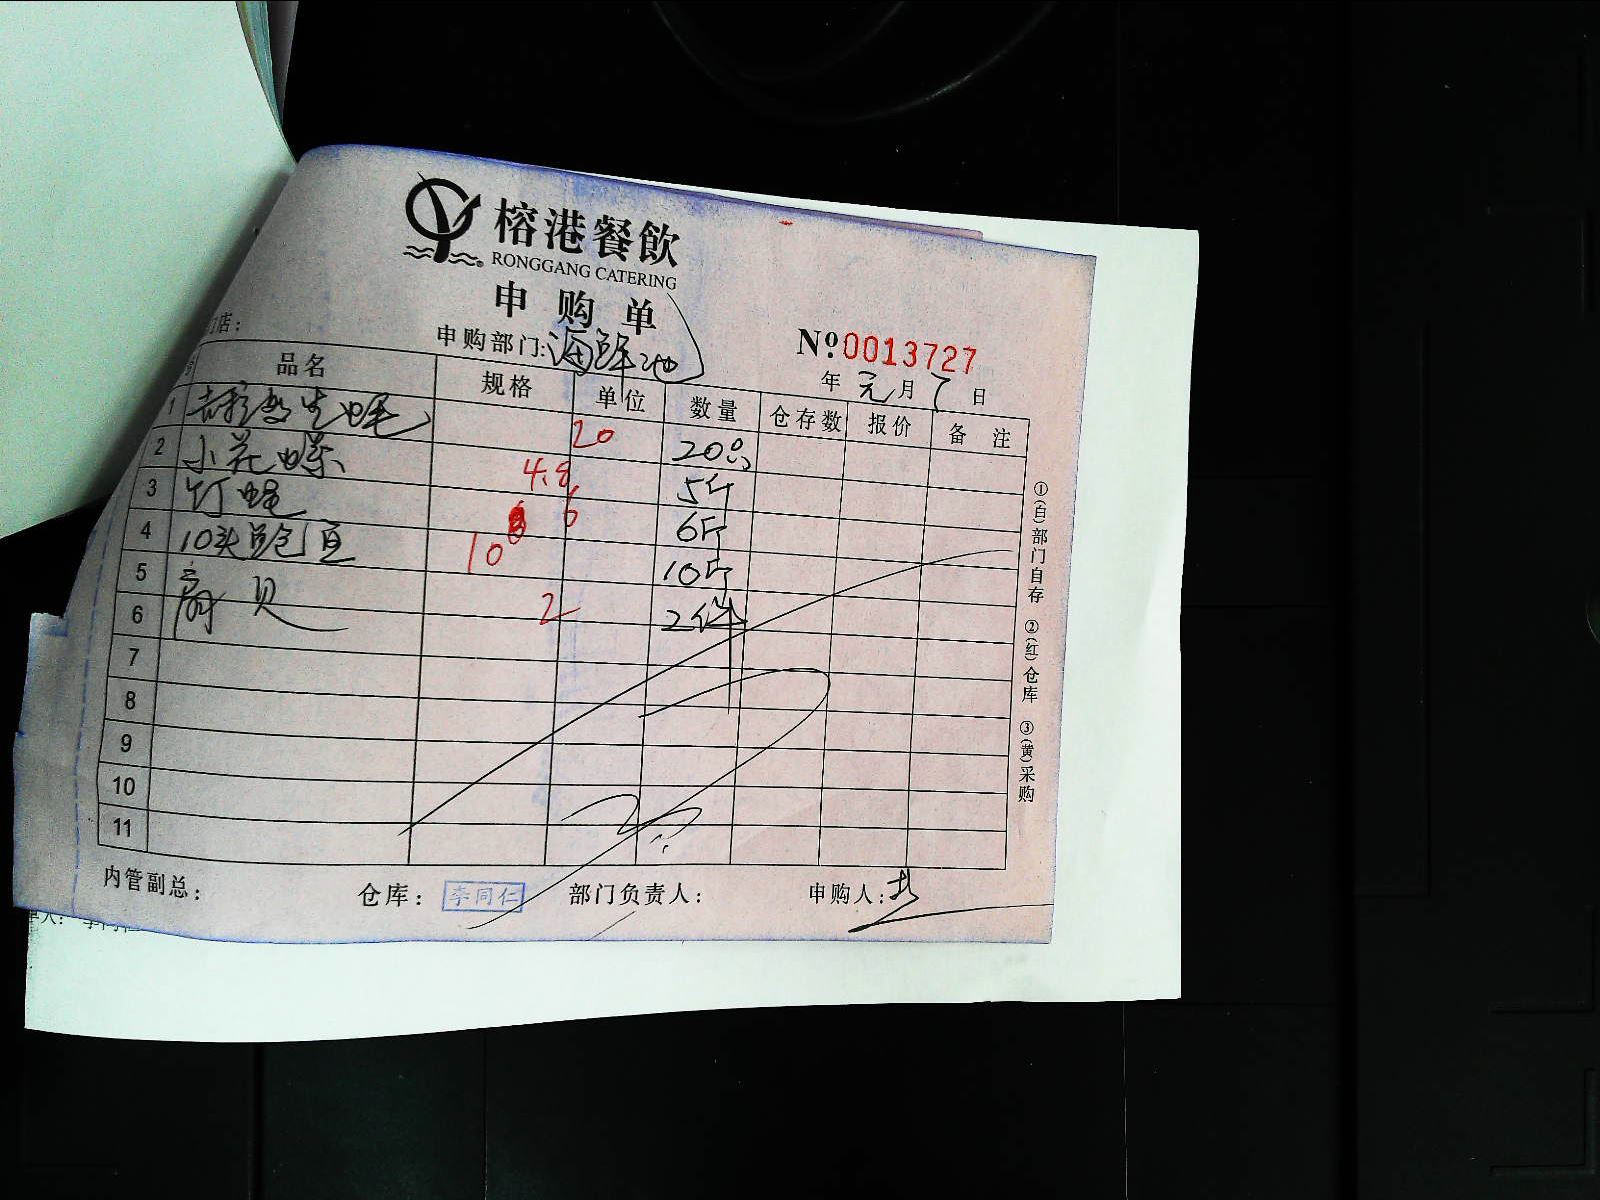 榕港餐飲
RONGGANG CATERING
申购单
门店：
申购部门:海鲜池
№0013727
年 元 月 7 日
品名 规格 单位 数量 仓存数 报价 备注
1 生蚝 20 20只
2 小花螺 4.8 5斤
3 灯 6 6斤
4 10头鲍鱼 10 10斤
5 扇贝 2 2件
6
7
8
9
10
11
①(白)部门自存 ②(红)仓库 ③(黄)采购
内管副总： 仓库：李同仁 部门负责人： 申购人：